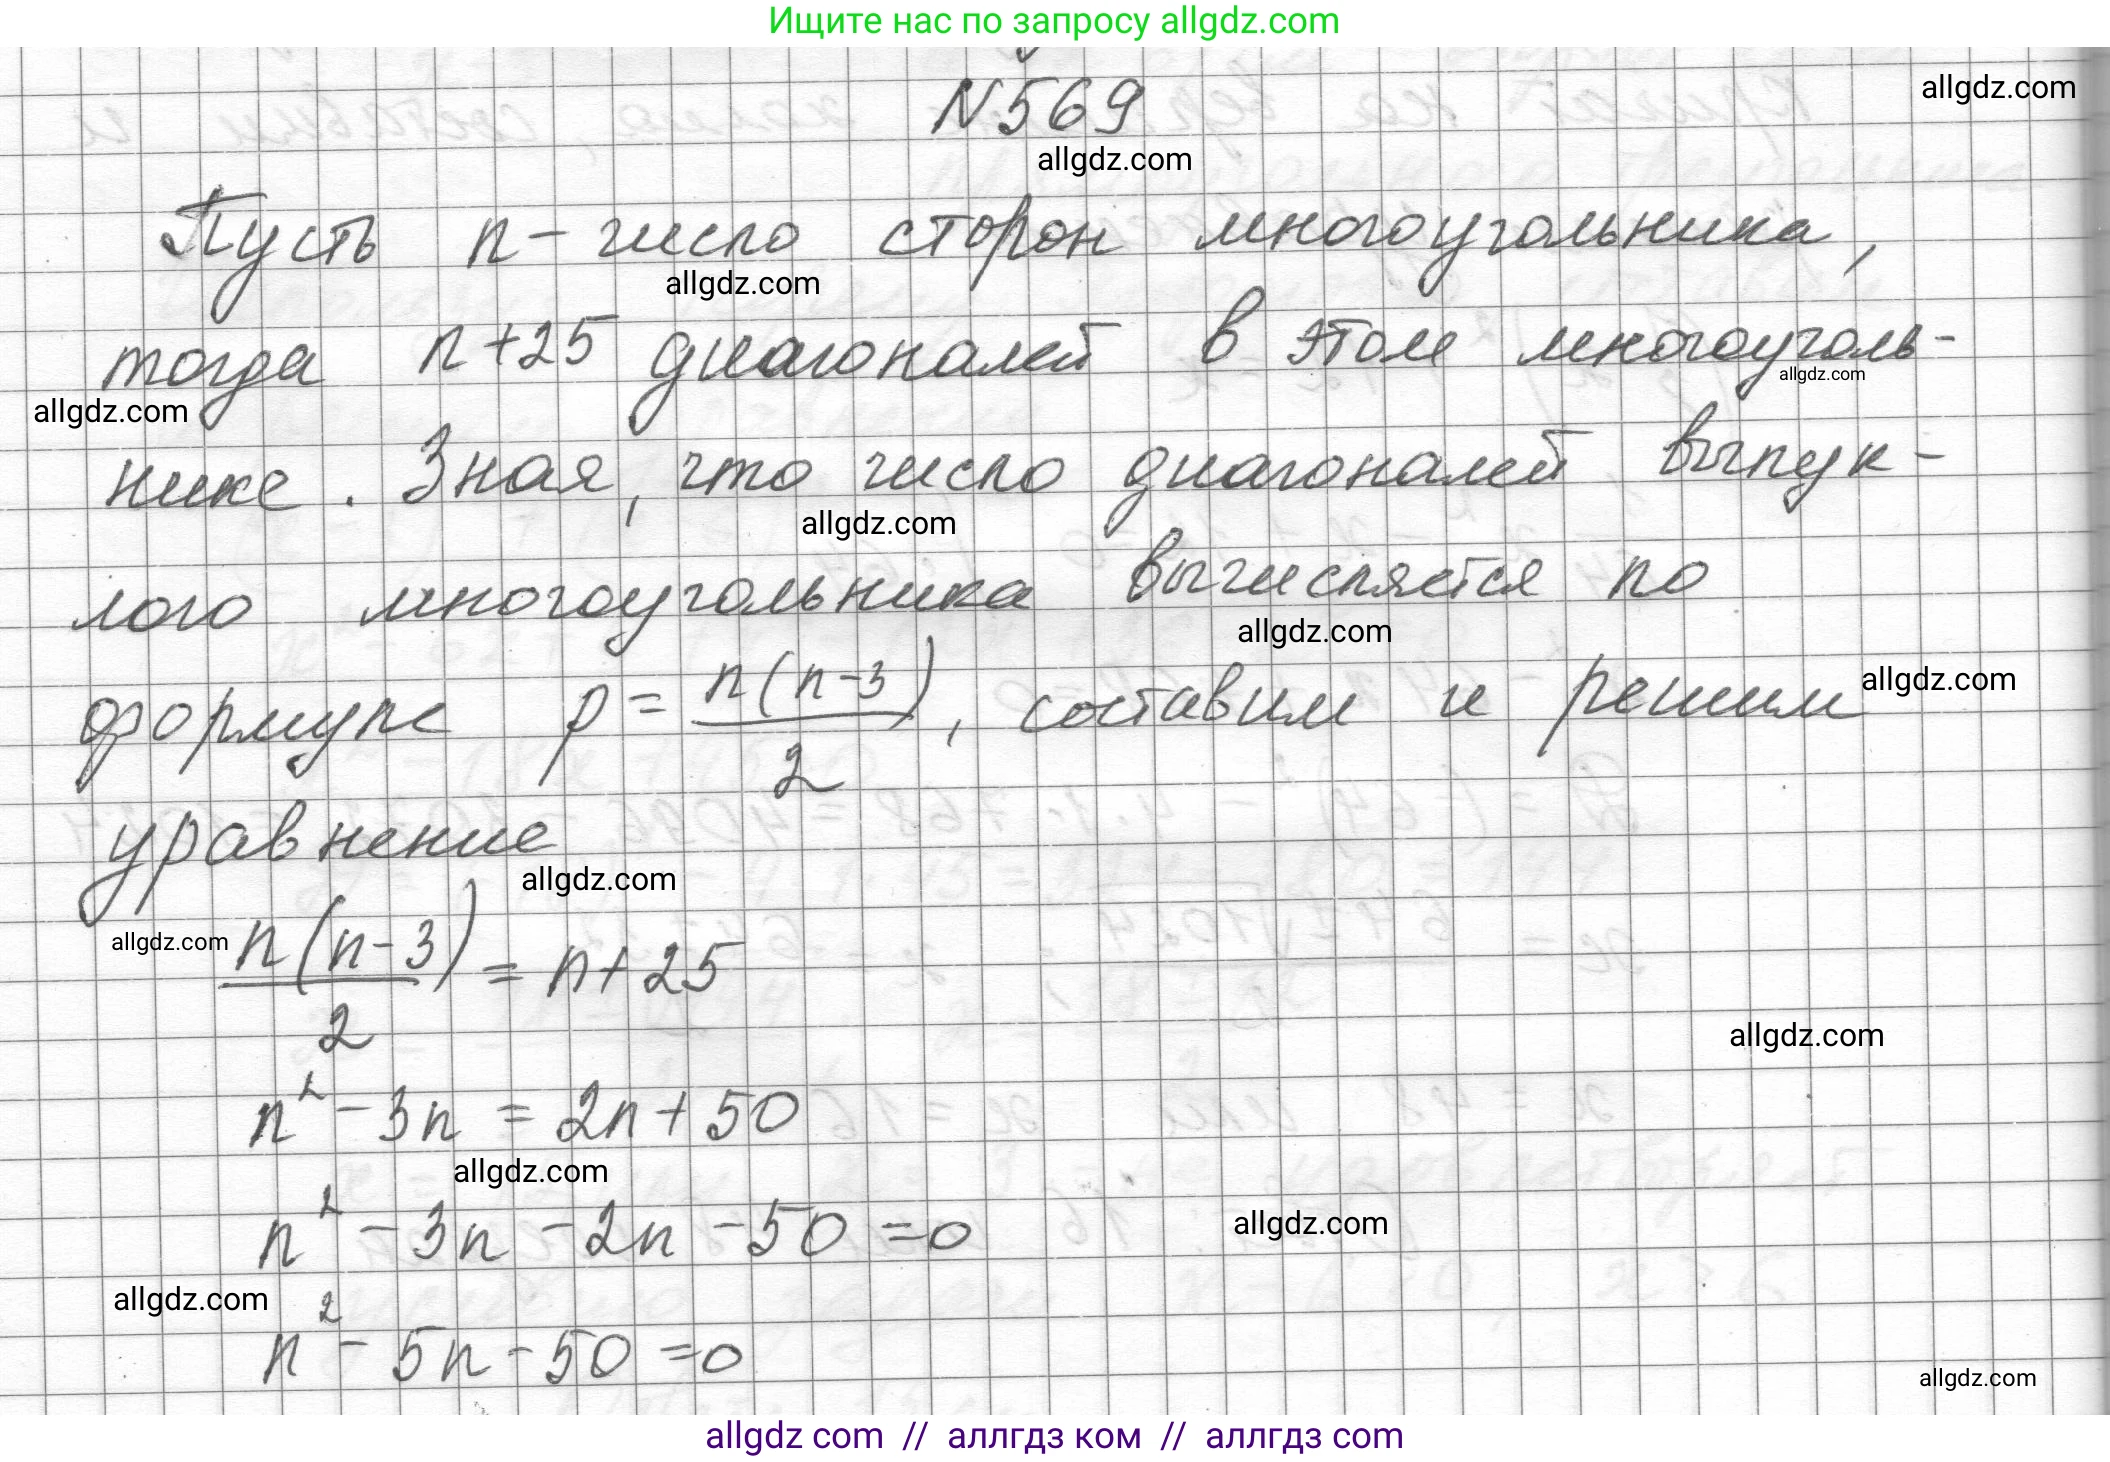 Ищите нас по запросу allgdz.com
allgdz.com
N569
allgdz.com
Пусть n - число сторон многоугольника,
allgdz.com
тогда n+25 диагоналей в этом многоуголь-
allgdz.com
allgdz.com
нике. Зная, что число диагоналей выпук-
allgdz.com
лого многоугольника вычисляется по
allgdz.com
формуле p = n(n-3)/2, составим и решим
allgdz.com
уравнение
allgdz.com
allgdz.com
n(n-3)/2 = n+25
allgdz.com
n² - 3n = 2n + 50
allgdz.com
n² - 3n - 2n - 50 = 0
allgdz.com
allgdz.com
n² - 5n - 50 = 0
allgdz.com
allgdz com // аллгдз ком // аллгдз com